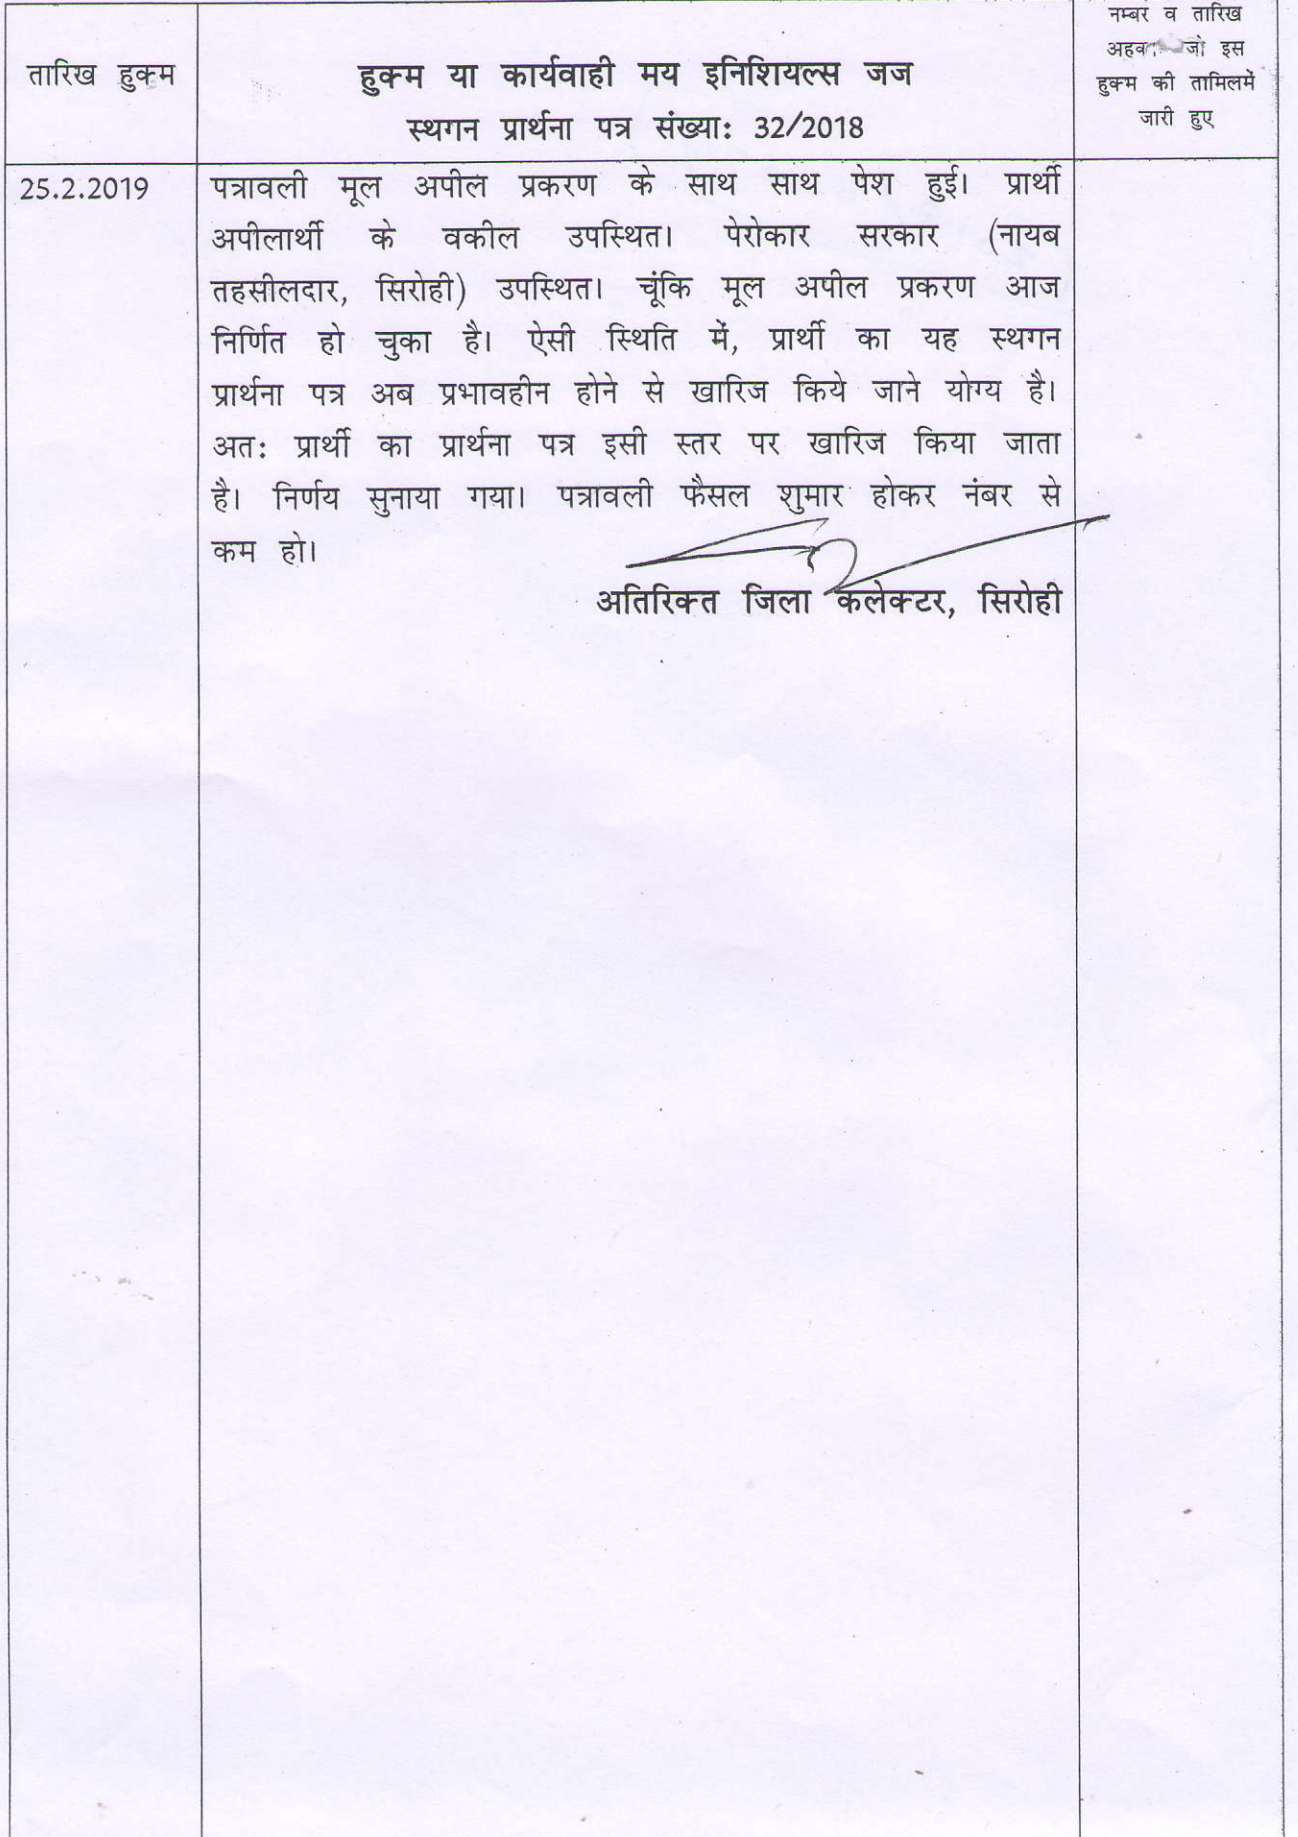 तारिख हुक्म
हुक्म या कार्यवाही मय इनिशियल्स जज
स्थगन प्रार्थना पत्र संख्या: 32/2018
नम्बर व तारिख
जो इस
हुक्म की तामिलमें
जारी हुए
25.2.2019
पत्रावली मूल अपील प्रकरण के साथ साथ पेश हुई। प्रार्थी
अपीलार्थी के वकील उपस्थित। पेरोकार सरकार (नायब
तहसीलदार, सिरोही) उपस्थित। चूंकि मूल अपील प्रकरण आज
निर्णित हो चुका है। ऐसी स्थिति में, प्रार्थी का यह स्थगन
प्रार्थना पत्र अब प्रभावहीन होने से खारिज किये जाने योग्य है।
अत: प्रार्थी का प्रार्थना पत्र इसी स्तर पर खारिज किया जाता
है। निर्णय सुनाया गया। पत्रावली फैसल शुमार होकर नंबर से
कम हो।
अतिरिक्त जिला कलेक्टर, सिरोही